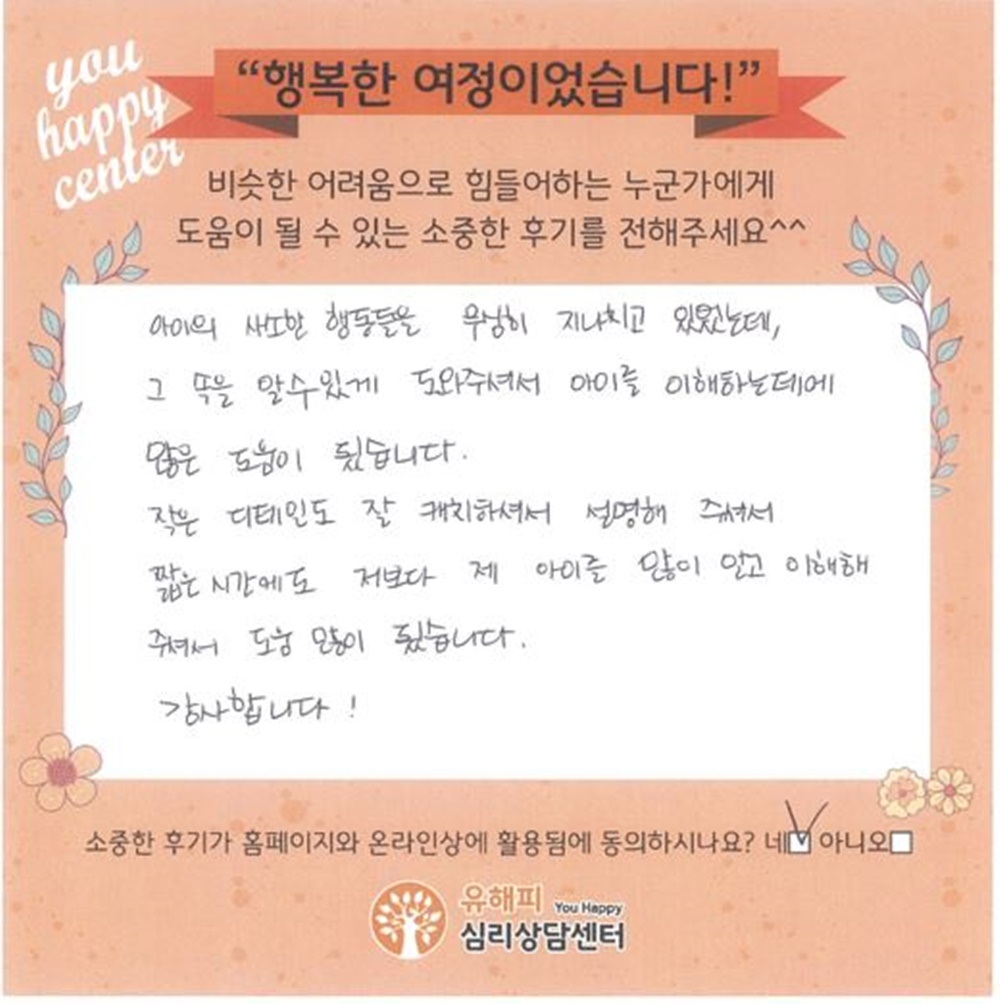 you
happy
center
“행복한 여정이었습니다!”
비슷한 어려움으로 힘들어하는 누군가에게
도움이 될 수 있는 소중한 후기를 전해주세요^^
아이의 사소한 행동들을 무심히 지나치고 있었는데,
그 뜻을 알수있게 도와주셔서 아이를 이해하는데에
많은 도움이 됬습니다.
작은 디테일도 잘 캐치하셔서 설명해 주셔서
짧은 시간에도 저보다 제 아이를 많이 알고 이해해
주셔서 도움 많이 됬습니다.
감사합니다!
소중한 후기가 홈페이지와 온라인상에 활용됨에 동의하시나요? 네☑ 아니오□
유해피 You Happy
심리상담센터